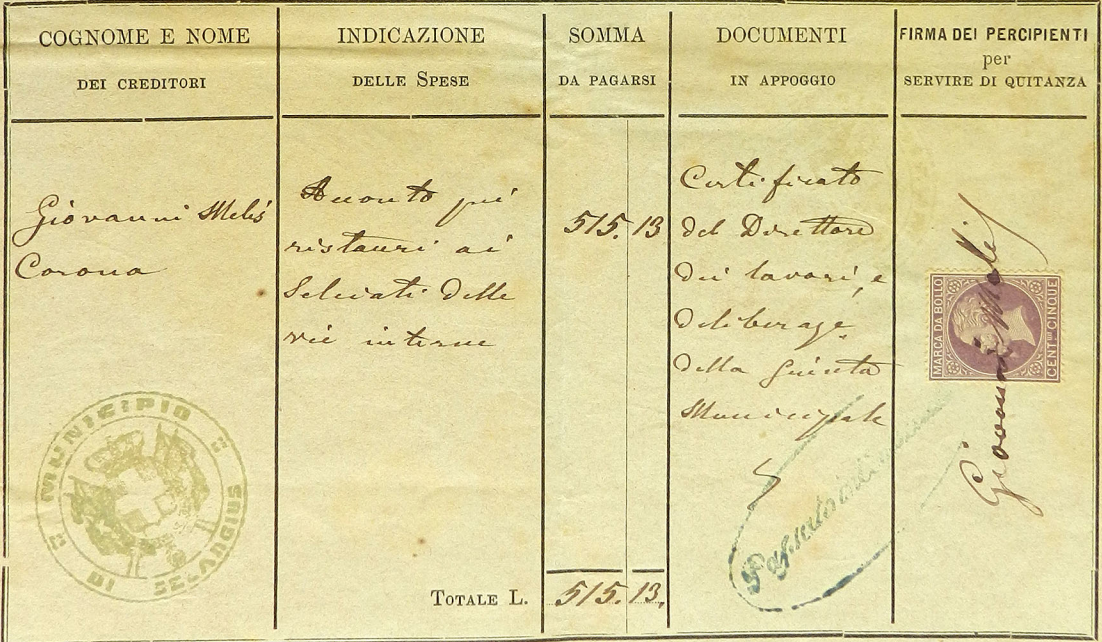 COGNOME E NOME
DEI CREDITORI
INDICAZIONE
DELLE SPESE
SOMMA
DA PAGARSI
DOCUMENTI
IN APPOGGIO
FIRMA DEI PERCIPIENTI
per
SERVIRE DI QUITANZA
Giovanni Melis
Corona
Acconto pei
ristauri ai
Selciati delle
vie interne
515.13
Certificato
del Direttore
dei lavori, e
deliberaze
della Giunta
Municipale
MARCA DA BOLLO
CENT. CINQUE
Giovanni Melis
MUNICIPIO
DI
TOTALE L.
515.13.